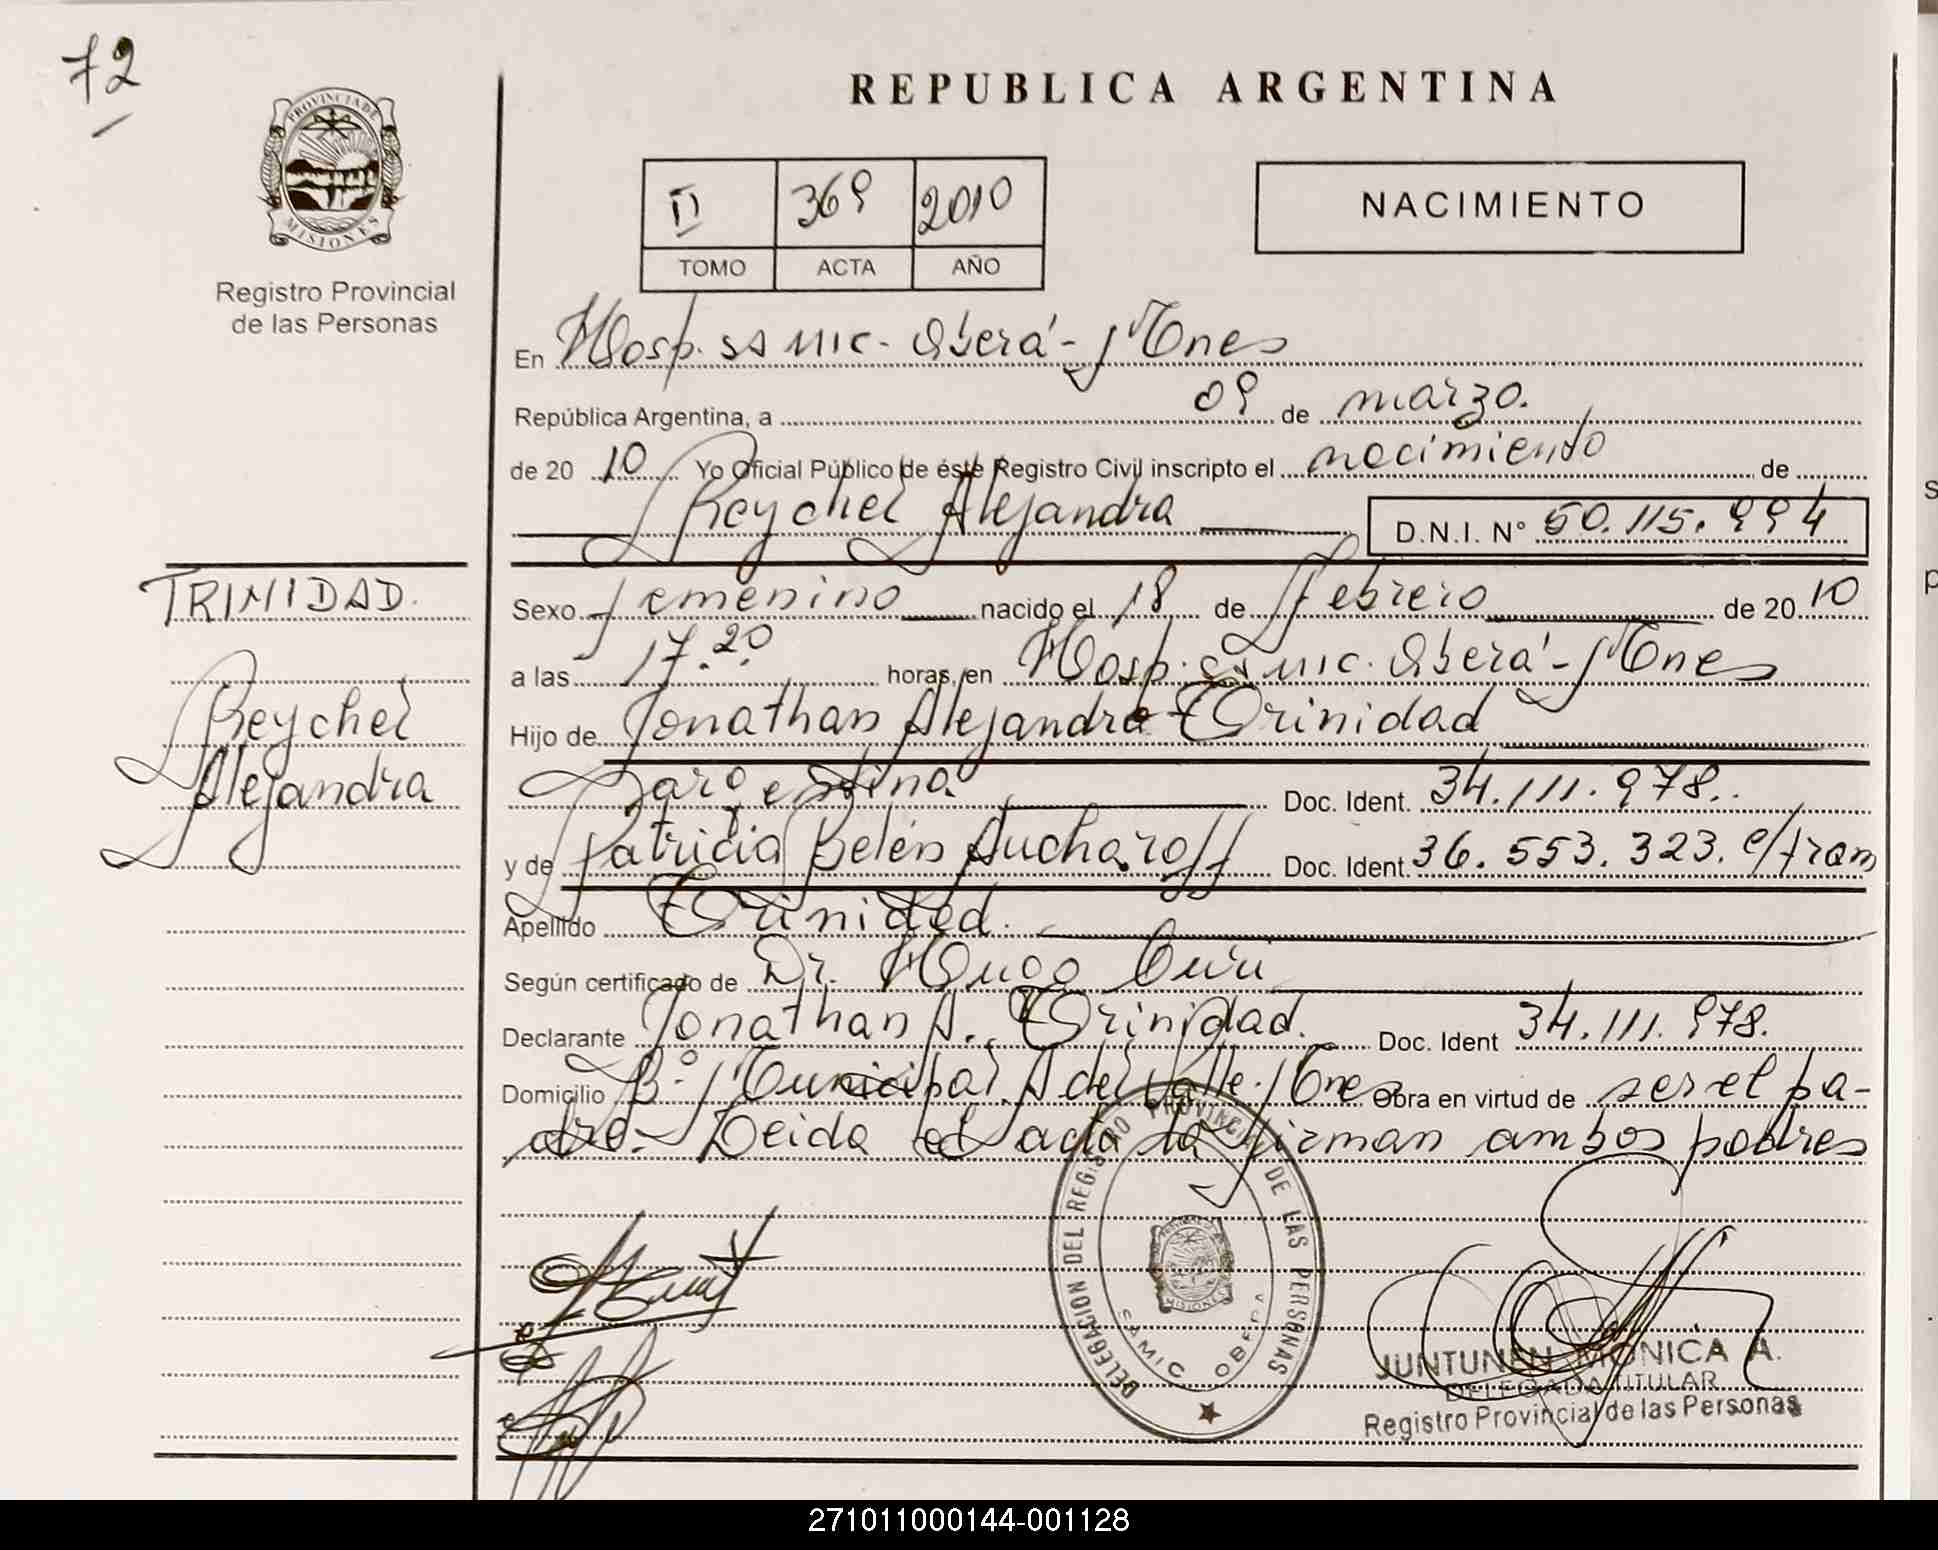 72
PROVINCIA DE
MISIONES
Registro Provincial
de las Personas
REPUBLICA ARGENTINA
II 369 2010
TOMO ACTA AÑO
NACIMIENTO
En Hosp. SAMIC - Oberá - Mnes
República Argentina, a 09 de marzo.
de 20 10 Yo Oficial Público de éste Registro Civil inscripto el nacimiento de
Reychel Alejandra D.N.I. Nº 50.115.994
TRINIDAD.
Reychel
Alejandra
Sexo femenino nacido el 18 de febrero de 20 10
a las 17.20 horas, en Hosp. SAMIC. Oberá - Mnes
Hijo de Jonathan Alejandro Trinidad
argentina Doc. Ident. 34.111.978.
y de Patricia Belén Aucharoff Doc. Ident. 36.553.323. e/tram
Apellido Trinidad.
Según certificado de Dr. Hugo
Declarante Jonathan A. Trinidad. Doc. Ident 34.111.978.
Domicilio Bº Municipal A del Valle. Mnes Obra en virtud de ser el pa-
dre - Leida el acta la firman ambos padres
DELEGACION DEL REGISTRO PROVINCIAL DE LAS PERSONAS
MISIONES
SAMIC OBERA
JUNTUNEN MONICA A.
DELEGADA TITULAR
Registro Provincial de las Personas
271011000144-001128